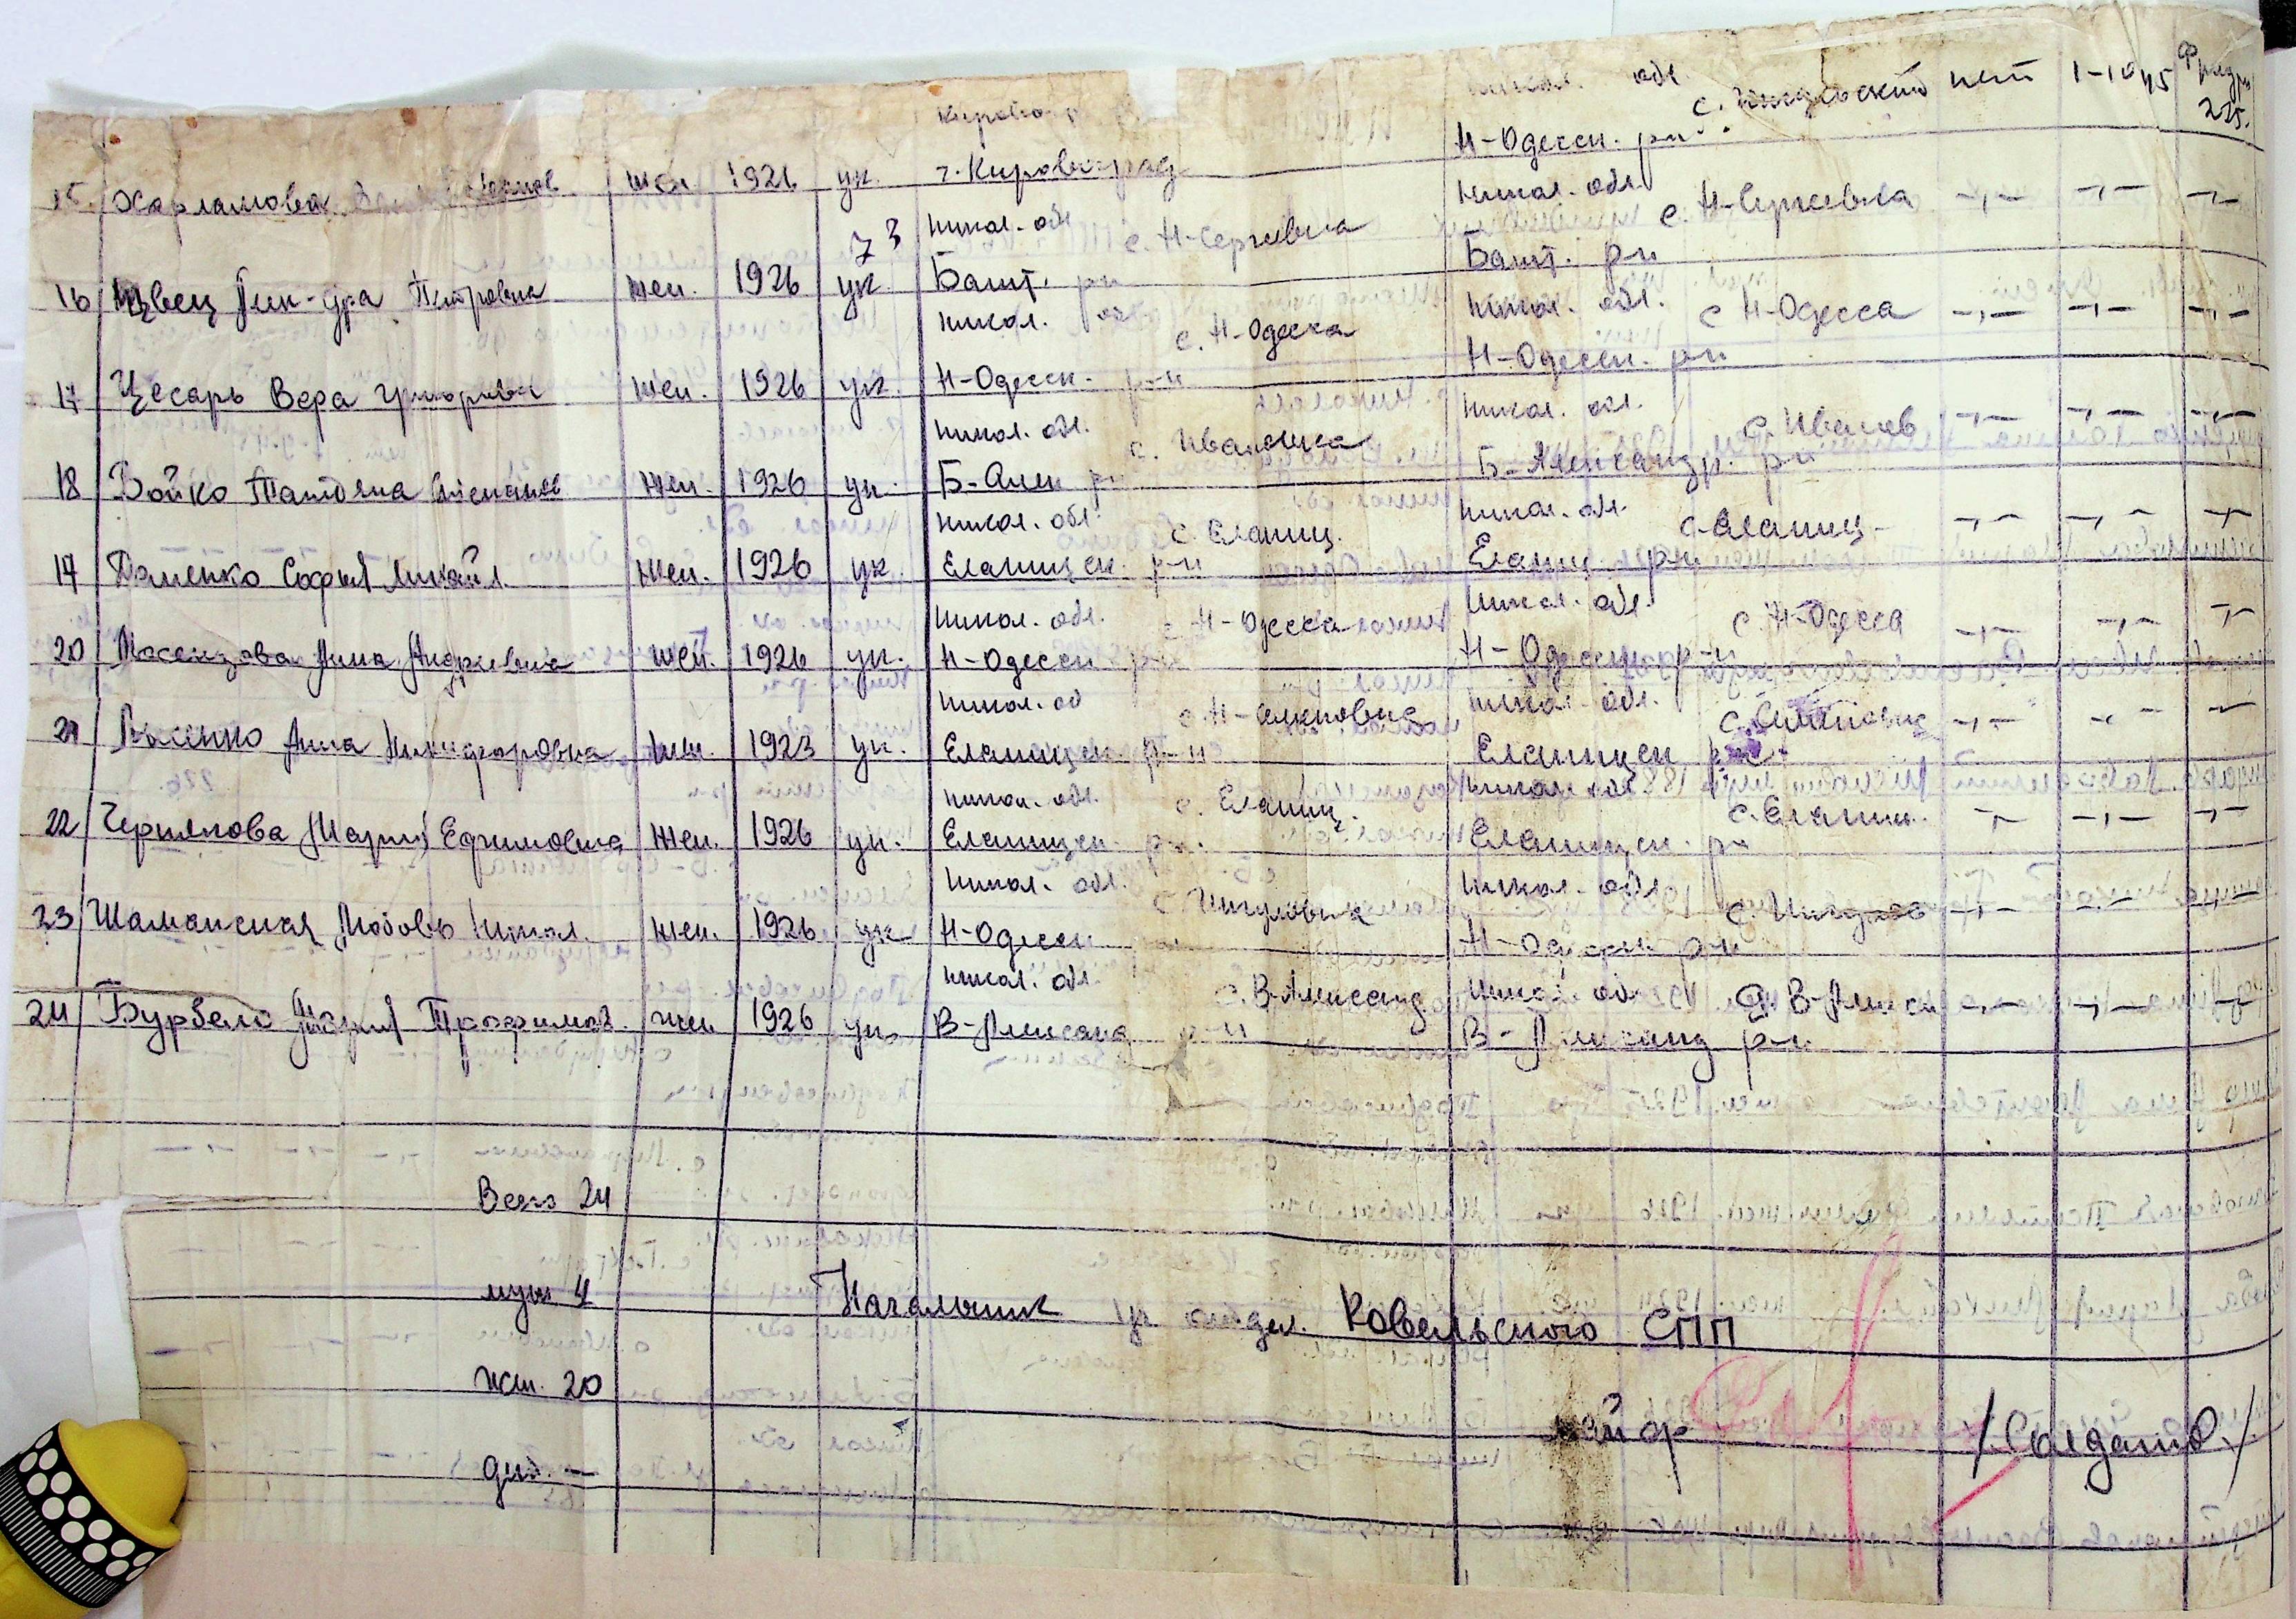 Кировогр
Никол. обл. с. нет 1-10 45
225.
15. Харламова жен 1926 ук. г. Кировоград Н-Одесск. р-н
73 Никол. обл с. Н-Сергеевка Никол. обл. с. Н-Сергеевка -„- -„- -„-
16 Швец Петровна жен. 1926 ук. Башт. р-н Башт. р-н
Никол. обл. с. Н-Одесса Никол. обл. с Н-Одесса -„- -„- -„-
17 Цесарь Вера Григорьевн жен. 1926 ук. Н-Одесск. р-н Н-Одесск. р-н
Никол. обл. с. Ивановка Никол. обл. с. Иванов -„- -„- -„-
18 Бойко Татьяна Степанов жен. 1926 ук. Б-Алек р-н Б-Александр. р-н
Никол. обл. с. Еланец. Никол. обл. с. Еланец -„- -„- -„-
19 София Михайл. жен. 1926 ук. Еланецк. р-н Еланец. р-н
Никол. обл. с. Н-Одесса Никол. обл. с. Н-Одесса -„- -„- -„-
20 Анна Андреевна жен. 1926 ук. Н-Одесск р-н Н-Одесск р-н
Никол. об Никол. обл. -„- -„- -„-
21 Лысенко Анна Никифоровна жен. 1923 ук. Еланецк. р-н Еланецк р-н
Никол. обл. с. Еланец. Никол. обл с. Еланец. -„- -„- -„-
22 Чернякова Мария Ефимовна жен. 1926 ук. Еланецк. р-н. Еланецк. р-н
Никол. обл. Никол. обл -„- -„- -„-
23 Шаманская Любовь Никол. жен. 1926 ук Н-Одесск. Н-Одесск р-н
Никол. обл. с. В-Александ Никол. обл. с. В-Алекс -„- -„- -„-
24 Бурбело Мария Трофимов. жен 1926 ук. В-Александ р-н В-Александ р-н
Всего 24
муж 4 Начальник отдел. Ковельского СПП
жен. 20
майор /Солдатов/
дет. —